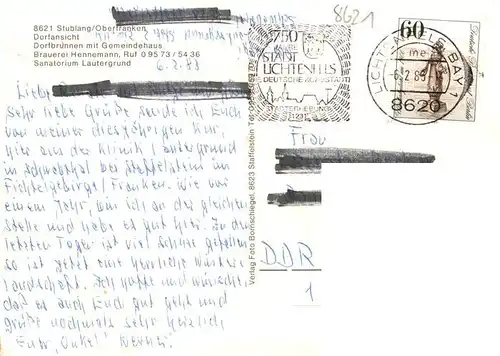 8621
8621 Stublang/Oberfranken
Dorfansicht
Dorfbrunnen mit Gemeindehaus
Brauerei Hennemann, Ruf 0 95 73 / 54 36
Sanatorium Lautergrund
6.2.83
Liebe
sehr liebe Grüße sende ich Euch
von meiner diesjährigen Kur,
hier aus der Klinik Lautergrund
in Schwabthal bei Staffelstein im
Fichtelgebirge / Franken. Wie vor
einem Jahr, bin ich an der gleichen
Stelle und habe es gut hier. In den
letzten Tagen ist viel Schnee gefallen
so ist jetzt eine herrliche Winter
landschaft. Ich hoffe und wünsche,
daß es auch Euch gut geht und
grüße nochmals sehr herzlich
Euer "Onkel" Werner
Verlag Foto Bornschlegel, 8623 Staffelstein
750
JAHRE
STADT
LICHTENFELS
DEUTSCHE KORBSTADT
STADTERHEBUNG
1231
LICHTENFELS, BAY 1
8620
60
Frau
DDR
1